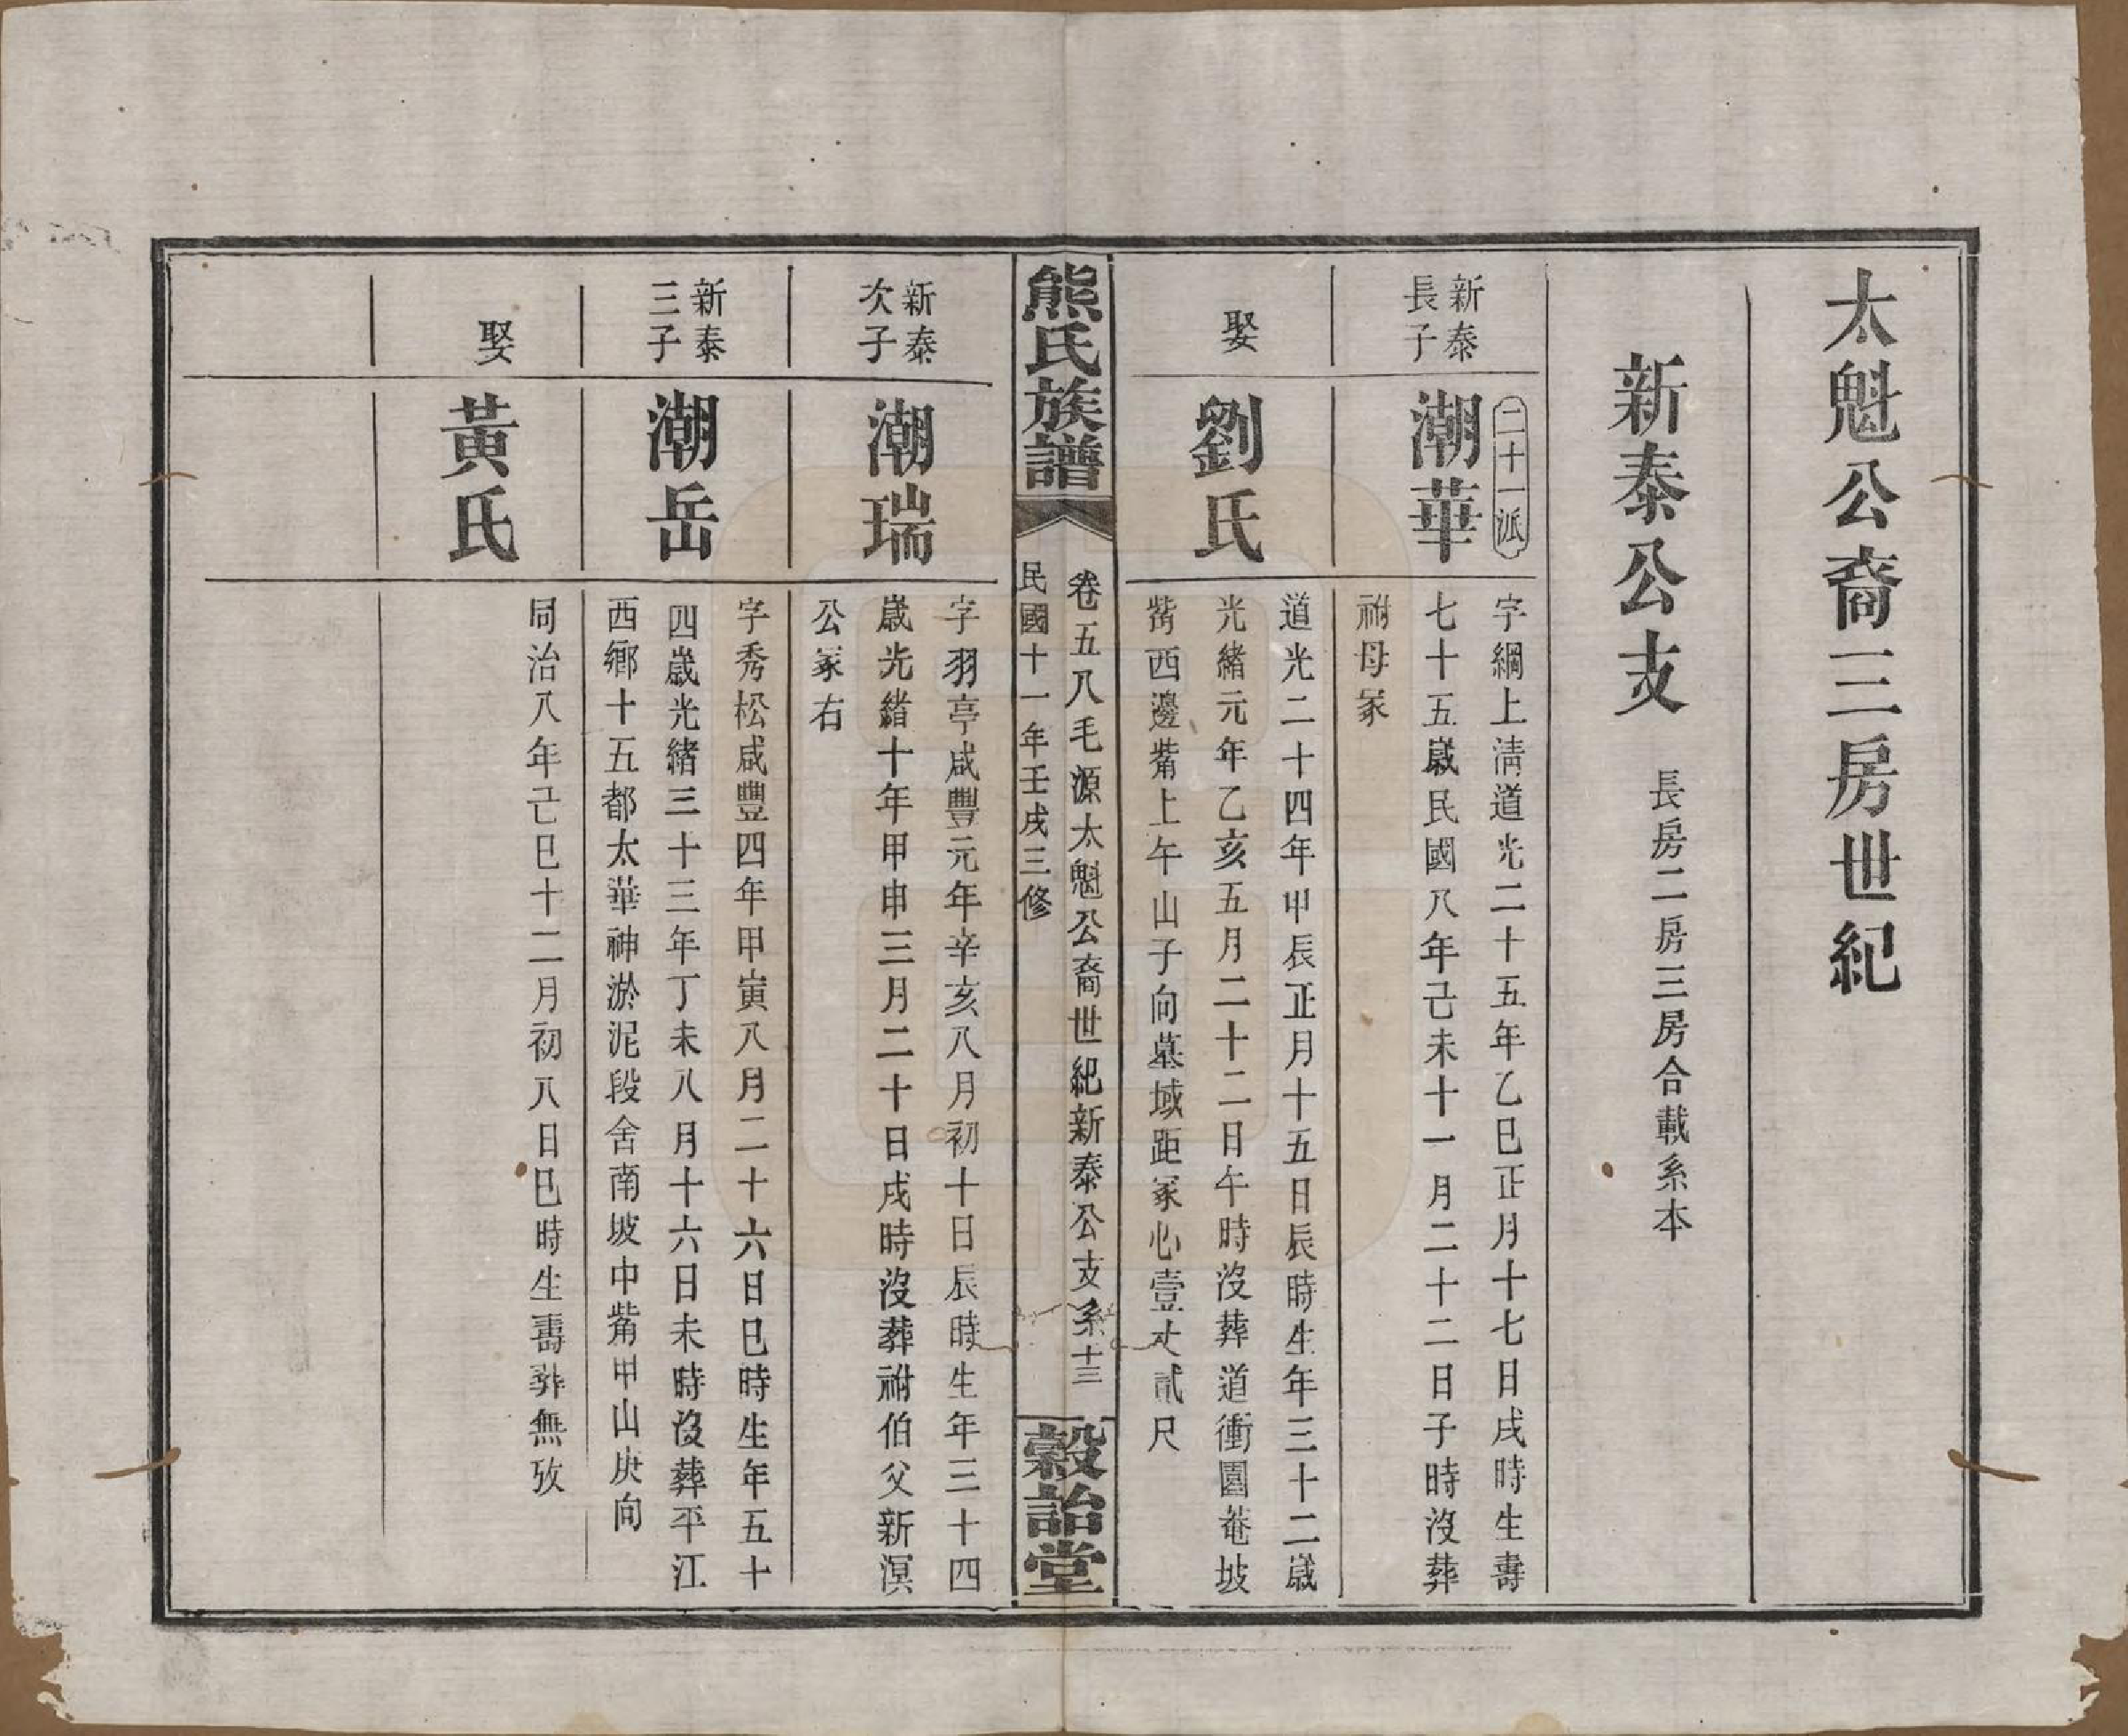 太魁公裔三房世紀
新泰公支
長房二房三房合載系本
二十一派
新泰
長子
潮華
字綱上清道光二十五年乙巳正月十七日戌時生壽
七十五歲民國八年己未十一月二十二日子時沒葬
祔母冢
娶
劉氏
道光二十四年甲辰正月十五日辰時生年三十二歲
光緒元年乙亥五月二十二日午時沒葬道衝園菴坡
觜西邊觜上午山子向墓域距冢心壹丈貳尺
熊氏族譜
卷五八毛源太魁公裔世紀新泰公支系十三
民國十一年壬戌三修
穀詒堂
新泰
次子
潮瑞
字羽亭咸豐元年辛亥八月初十日辰時生年三十四
歲光緒十年甲申三月二十日戌時沒葬祔伯父新溟
公冢右
新泰
三子
潮岳
字秀松咸豐四年甲寅八月二十六日巳時生年五十
四歲光緒三十三年丁未八月十六日未時沒葬平江
西鄉十五都太華神淤泥段舍南坡中觜甲山庚向
娶
黃氏
同治八年己巳十二月初八日巳時生壽葬無攷